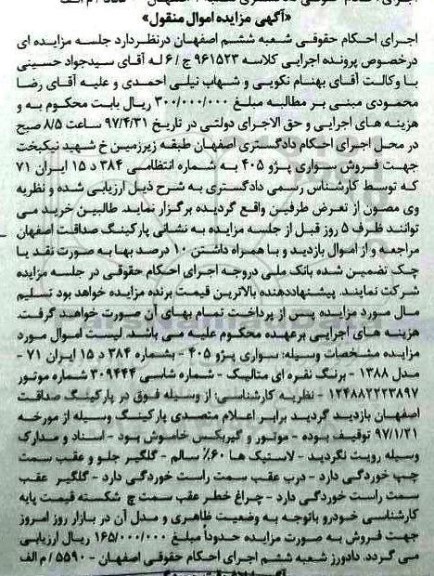 «آگهی مزایده اموال منقول»
اجرای احکام حقوقی شعبه ششم اصفهان درنظردارد جلسه مزایده ای
درخصوص پرونده اجرایی کلاسه ۹۶۱۵۲۳ ج / ۶ له آقای سیدجواد حسینی
با وکالت آقای بهنام نکویی و شهاب نیلی احمدی و علیه آقای رضا
محمودی مبنی بر مطالبه مبلغ ۳۰۰/۰۰۰/۰۰۰ ریال بابت محکوم به و
هزینه های اجرایی و حق الاجرای دولتی در تاریخ ۹۷/۴/۳۱ ساعت ۸/۵ صبح
در محل اجرای احکام دادگستری اصفهان طبقه زیرزمین خ شهید نیکبخت
جهت فروش سواری پژو ۴۰۵ به شماره انتظامی ۳۸۴ د ۱۵ ایران ۷۱
که توسط کارشناس رسمی دادگستری به شرح ذیل ارزیابی شده و نظریه
وی مصون از تعرض طرفین واقع گردیده برگزار نماید. طالبین خرید می
توانند ظرف ۵ روز قبل از جلسه مزایده به نشانی پارکینگ صداقت اصفهان
مراجعه و از اموال بازدید و با همراه داشتن ۱۰ درصد بها به صورت نقد یا
چک تضمین شده بانک ملی دروجه اجرای احکام حقوقی در جلسه مزایده
شرکت نمایند. پیشنهاددهنده بالاترین قیمت برنده مزایده خواهد بود تسلیم
مال مورد مزایده پس از پرداخت تمام بهای آن صورت خواهد گرفت.
هزینه های اجرایی برعهده محکوم علیه می باشد. لیست اموال مورد
مزایده مشخصات وسیله: سواری پژو ۴۰۵ - بشماره ۳۸۴ د ۱۵ ایران ۷۱ -
مدل ۱۳۸۸ - برنگ نقره ای متالیک - شماره شاسی ۳۰۹۴۴۴ شماره موتور
۱۲۴۸۸۲۲۳۸۹۷ - نظریه کارشناسی: از وسیله فوق در پارکینگ صداقت
اصفهان بازدید گردید برابر اعلام متصدی پارکینگ وسیله از مورخه
۹۷/۱/۲۱ توقیف بوده - موتور و گیربکس خاموش بود - اسناد و مدارک
وسیله رویت نگردید - لاستیک ها ۶۰٪ سالم - گلگیر جلو و عقب سمت
چپ خوردگی دارد - درب عقب سمت راست خوردگی دارد - گلگیر عقب
سمت راست خوردگی دارد - چراغ خطر عقب سمت چ شکسته قیمت پایه
کارشناسی خودرو باتوجه به وضعیت ظاهری و مدل آن در بازار روز امروز
جهت فروش به صورت مزایده حدوداً مبلغ ۱۶۵/۰۰۰/۰۰۰ ریال ارزیابی
می گردد. دادورز شعبه ششم اجرای احکام حقوقی اصفهان - ۵۵۹۰ / م الف